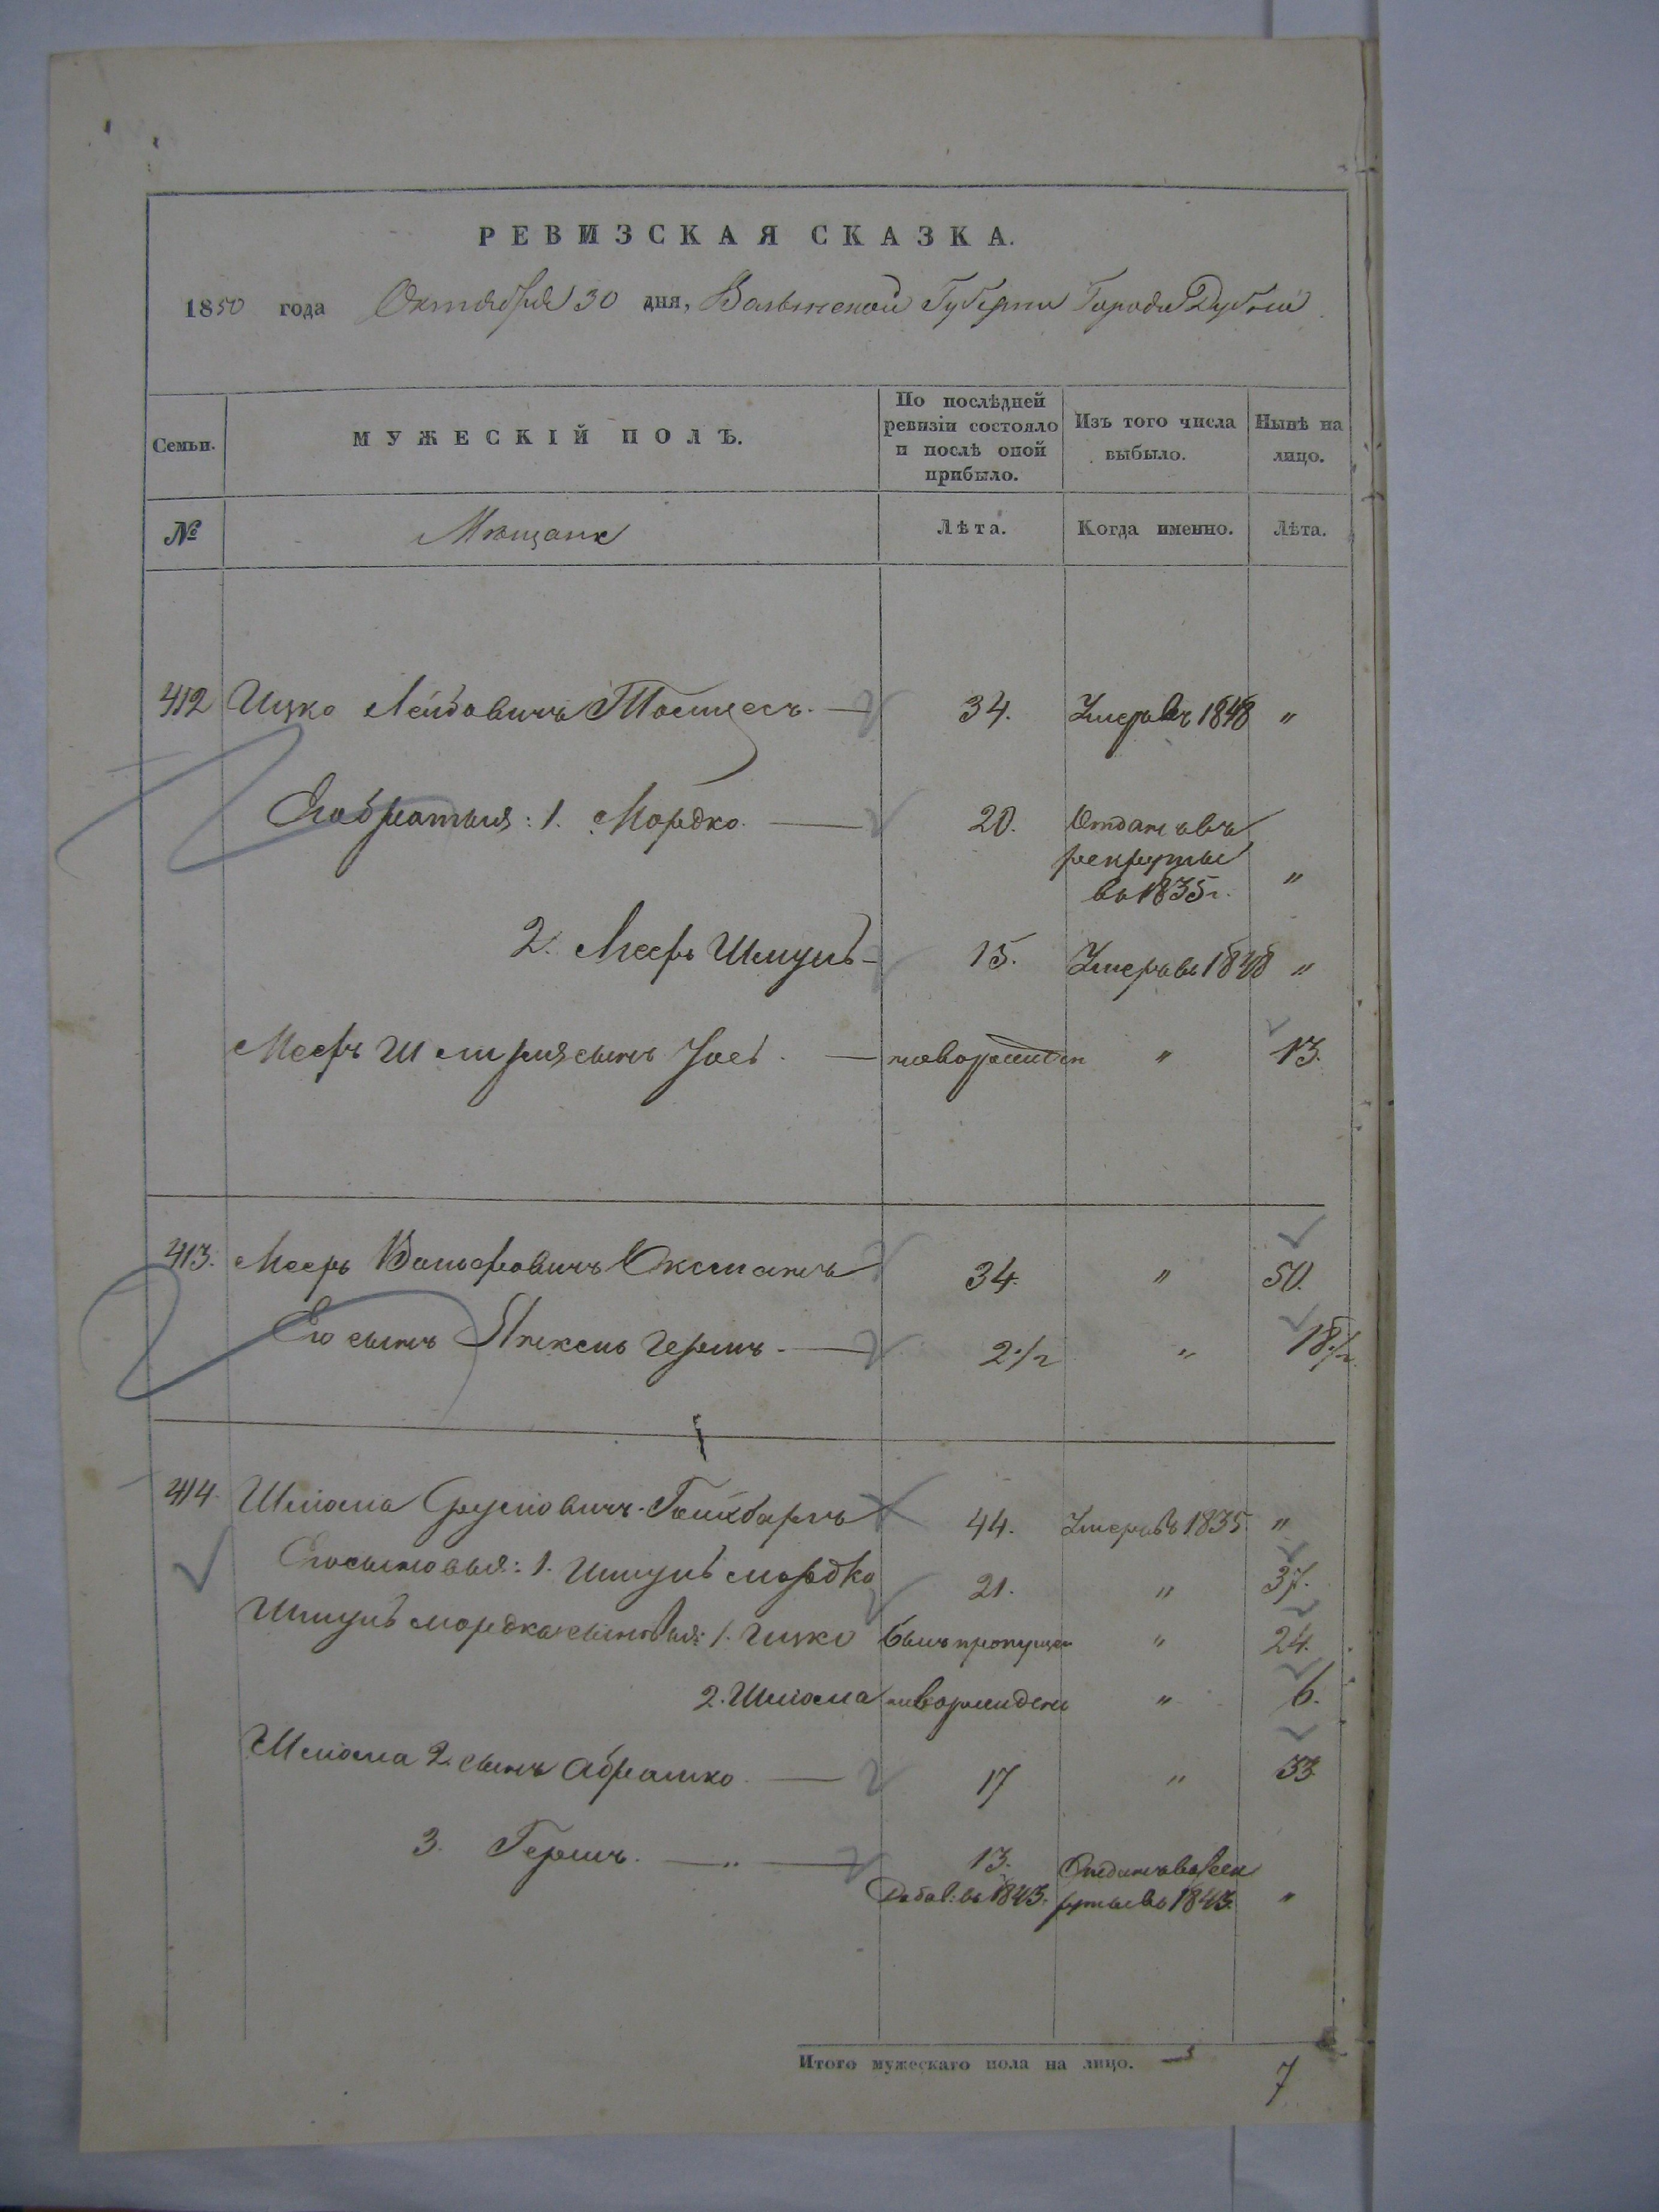 РЕВИЗСКАЯ СКАЗКА.
1850 года Октября 30 дня, Волынской Губернии Города Дубна
Семьи.
МУЖЕСКІЙ ПОЛЪ.
По послѣдней ревизіи состояло и послѣ оной прибыло.
Изъ того числа выбыло.
Нынѣ на лицо.
№ Мѣщане Лѣта. Когда именно. Лѣта.
412 Ицко Лейбовичъ — 34. Умеръ въ 1848 "
Его братья: 1. Мордко. — 20. Отданъ въ
рекруты
въ 1835 г. "
2. Мееръ Шмуль — 15. Умеръ въ 1848 "
Мееръ Шмуля сынъ — новорожден " 13.
413. Мееръ Оксманъ 34. " 50.
Его сынъ Гершъ. — 2 1/2 " 18 1/2
414. Шлёма Сруловичъ Гойхбаргъ 44. Умеръ въ 1835 "
Его сыновья: 1. Шмуль Мордко 21. " 37.
Шмуль Мордка сыновья: 1. Ицко былъ пропущен " 24.
2. Шлёма новорожден " 6.
Шлёма 2. сынъ Абрамко. — 17 " 33
3. Гершъ. — " — 13. Отданъ въ рек
Добав: въ 1843. руты въ 1843. "
Итого мужескаго пола на лицо. — 7